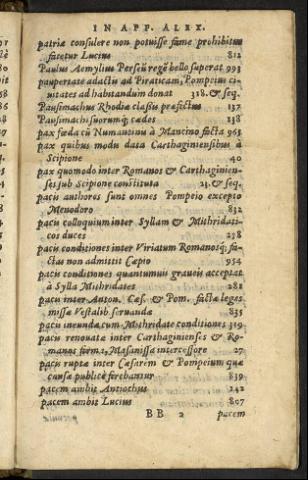 IN APP. ALEX.
patriæ consulere non potuisse fame prohibitus
fatetur Lucius 812
Paulus Aemylius Perseū regē bello superat 993
paupertate adactū ad Piraticam, Pompeius ci
uitates ad habitandum donat 318. & seq.
Pausimachus Rhodiæ classis præfectus 137
Pausimachi suorumq; cædes 138
pax fœda cū Numantinis à Mancino facta 963
pax quibus modis data Carthaginiensibus à
Scipione 40
pax quomodo inter Romanos & Carthaginien-
ses sub Scipione constituta 21. & seq.
pacis authores sunt omnes Pompeio excepto
Menodoro 832
pacis colloquium inter Syllam & Mithridati-
cos duces 278
pacis conditiones inter Viriatum Romanosq; fa-
ctas non admittit Cæpio 954
pacis conditiones quantumuis graueis acceptat
à Sylla Mithridates 281
pacis inter Anton. Cæs. & Pom. factæ leges
missæ Vestalib. seruandæ 835
pacis ineundæ cum Mithridate conditiones 319
pacis renouatæ inter Carthaginienses & Ro-
manos firma, Masanissa intercessore 27
pacis ruptæ inter Cæsarem & Pompeium quæ
causæ publicè ferebantur 839
pacem ambit Antiochus 242
pacem ambit Lucius 807
BB 2 pacem